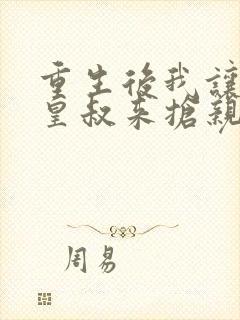 重生後我讓
皇叔來搶親
周易